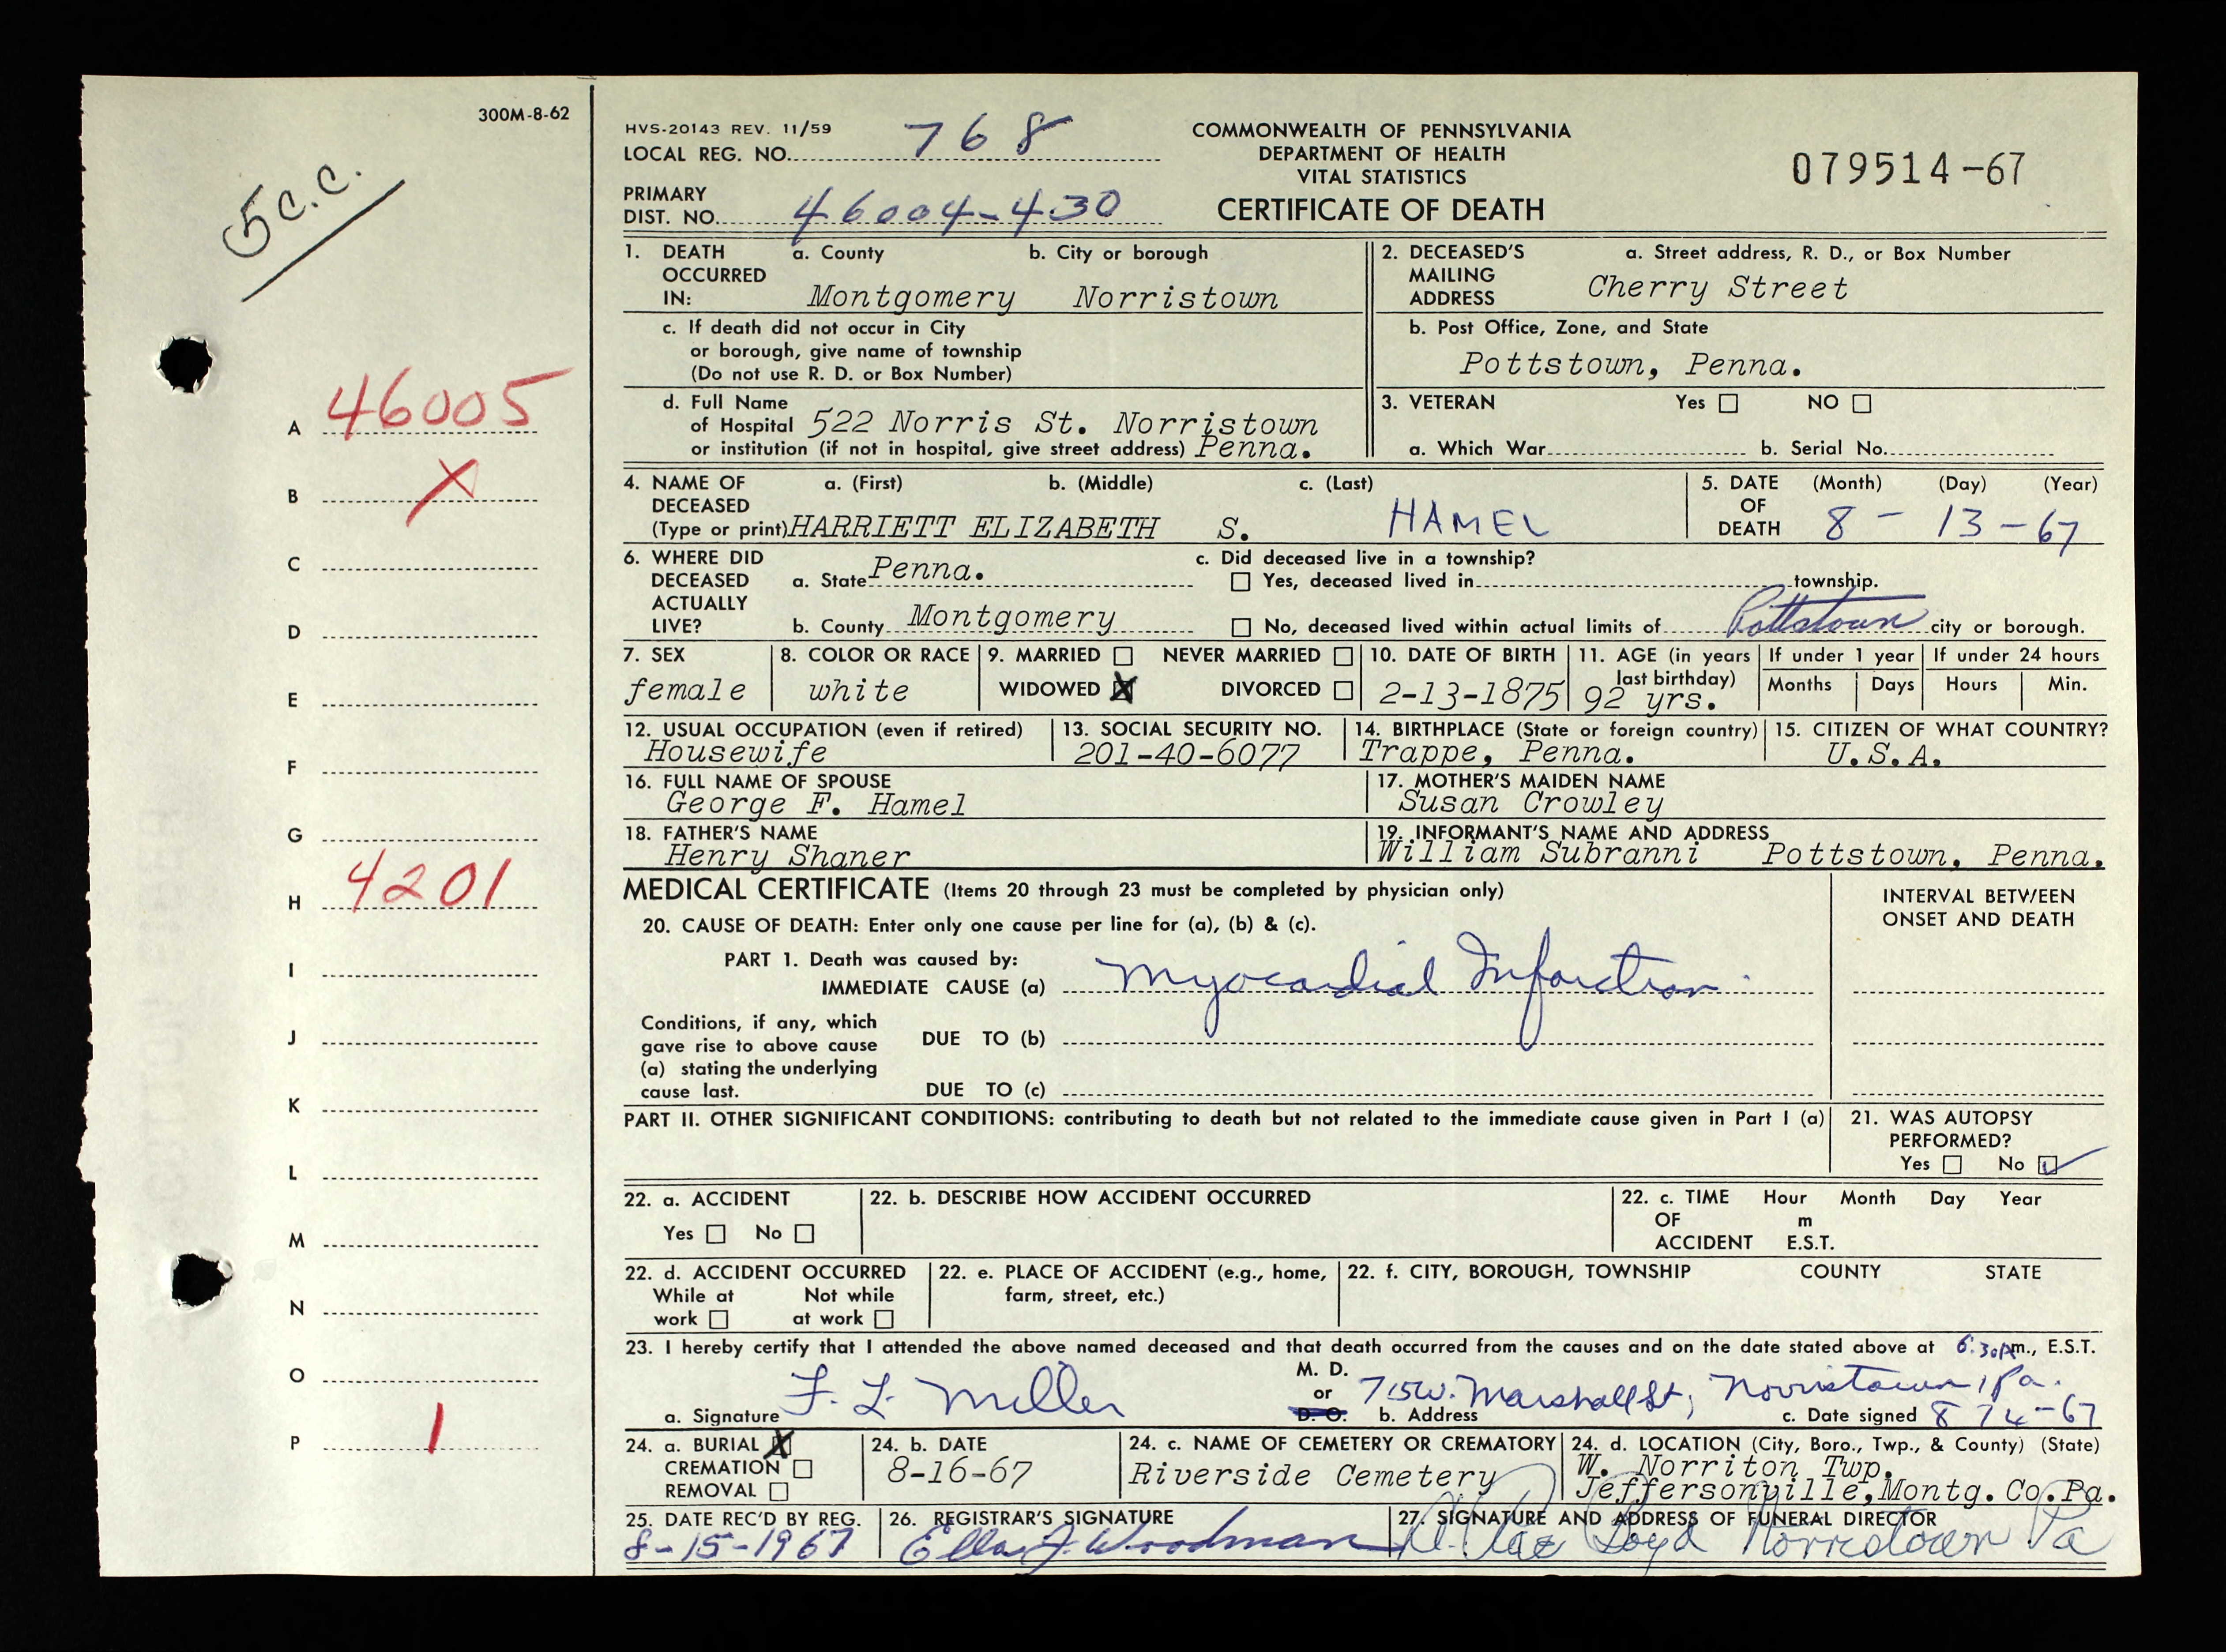 300M-8-62
5 c.c.
A 46005
B X
C
D
E
F
G
H 4201
I
J
K
L
M
N
O
P 1
HVS-20143 REV. 11/59
LOCAL REG. NO. 768
PRIMARY
DIST. NO. 46004-430
COMMONWEALTH OF PENNSYLVANIA
DEPARTMENT OF HEALTH
VITAL STATISTICS
CERTIFICATE OF DEATH
079514-67
1. DEATH a. County b. City or borough
OCCURRED
IN: Montgomery Norristown
c. If death did not occur in City
or borough, give name of township
(Do not use R. D. or Box Number)
d. Full Name
of Hospital 522 Norris St. Norristown
or institution (if not in hospital, give street address) Penna.
2. DECEASED'S a. Street address, R. D., or Box Number
MAILING Cherry Street
ADDRESS
b. Post Office, Zone, and State
Pottstown, Penna.
3. VETERAN Yes NO
a. Which War b. Serial No.
4. NAME OF a. (First) b. (Middle) c. (Last)
DECEASED
(Type or print) HARRIETT ELIZABETH S. HAMEL
5. DATE (Month) (Day) (Year)
OF
DEATH 8 - 13 - 67
6. WHERE DID c. Did deceased live in a township?
DECEASED a. State Penna. Yes, deceased lived in township.
ACTUALLY
LIVE? b. County Montgomery No, deceased lived within actual limits of Pottstown city or borough.
7. SEX
female
8. COLOR OR RACE
white
9. MARRIED NEVER MARRIED
WIDOWED X DIVORCED
10. DATE OF BIRTH
2-13-1875
11. AGE (in years
last birthday)
92 yrs.
If under 1 year
Months Days
If under 24 hours
Hours Min.
12. USUAL OCCUPATION (even if retired)
Housewife
13. SOCIAL SECURITY NO.
201-40-6077
14. BIRTHPLACE (State or foreign country)
Trappe, Penna.
15. CITIZEN OF WHAT COUNTRY?
U.S.A.
16. FULL NAME OF SPOUSE
George F. Hamel
17. MOTHER'S MAIDEN NAME
Susan Crowley
18. FATHER'S NAME
Henry Shaner
19. INFORMANT'S NAME AND ADDRESS
William Subranni Pottstown, Penna.
MEDICAL CERTIFICATE (Items 20 through 23 must be completed by physician only)
INTERVAL BETWEEN
ONSET AND DEATH
20. CAUSE OF DEATH: Enter only one cause per line for (a), (b) & (c).
PART 1. Death was caused by:
IMMEDIATE CAUSE (a) Myocardial Infarction
Conditions, if any, which
gave rise to above cause DUE TO (b)
(a) stating the underlying
cause last. DUE TO (c)
PART II. OTHER SIGNIFICANT CONDITIONS: contributing to death but not related to the immediate cause given in Part I (a)
21. WAS AUTOPSY
PERFORMED?
Yes No ✓
22. a. ACCIDENT
Yes No
22. b. DESCRIBE HOW ACCIDENT OCCURRED
22. c. TIME Hour Month Day Year
OF m
ACCIDENT E.S.T.
22. d. ACCIDENT OCCURRED
While at Not while
work at work
22. e. PLACE OF ACCIDENT (e.g., home,
farm, street, etc.)
22. f. CITY, BOROUGH, TOWNSHIP COUNTY STATE
23. I hereby certify that I attended the above named deceased and that death occurred from the causes and on the date stated above at 6:30 Pm., E.S.T.
M. D.
or
D. O.
a. Signature F. L. Miller
b. Address 715 W. Marshall St, Norristown, Pa.
c. Date signed 8 14-67
24. a. BURIAL X
CREMATION
REMOVAL
24. b. DATE
8-16-67
24. c. NAME OF CEMETERY OR CREMATORY
Riverside Cemetery
24. d. LOCATION (City, Boro., Twp., & County) (State)
W. Norriton Twp.
Jeffersonville, Montg. Co. Pa.
25. DATE REC'D BY REG.
8-15-1967
26. REGISTRAR'S SIGNATURE
Ella J. Woodman
27. SIGNATURE AND ADDRESS OF FUNERAL DIRECTOR
Boyd Norristown Pa